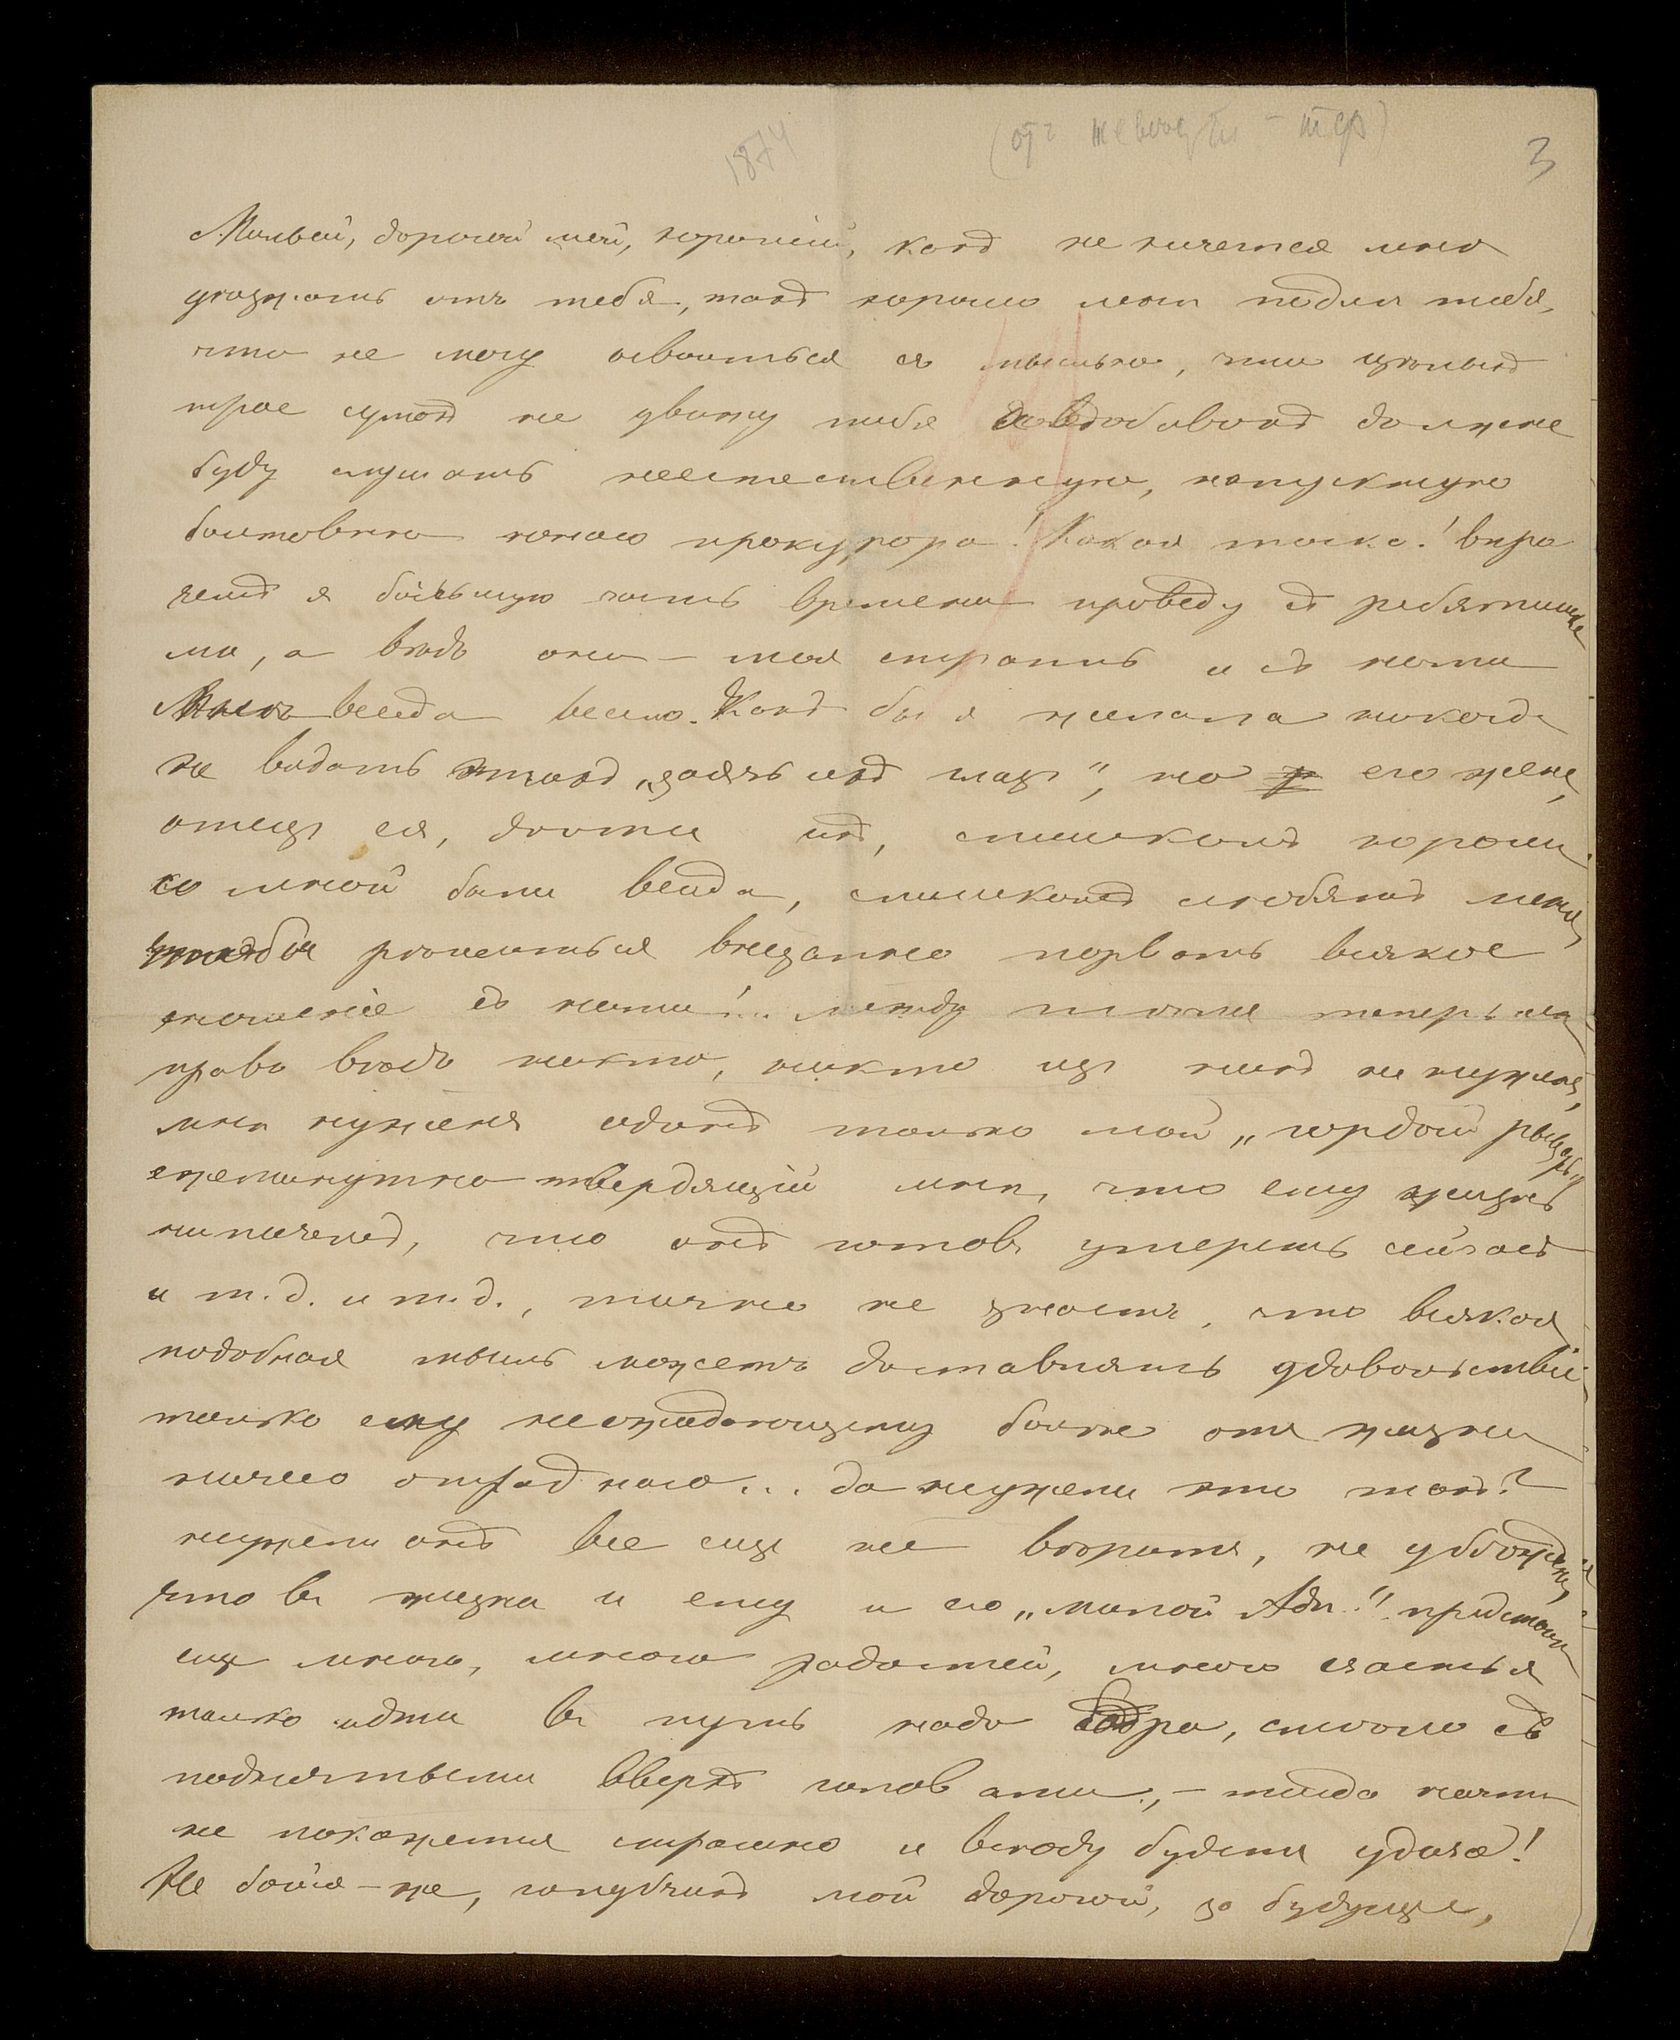 1874
3
Милый, дорогой мой, хорошій, какъ не хочется мнѣ
уѣзжать отъ тебя, такъ хорошо мнѣ подлѣ тебя,
что не могу освоиться съ мыслью, что цѣлыхъ
трое сутокъ не увижу тебя и вдобавокъ должна
буду слушать неестественную, напускную
болтовню юнаго прокурора! Какая тоска! впро
чемъ я большую часть времени проведу съ ребятишка
ми, а вѣдь они – моя страсть и съ ними
мнѣ всегда весело. Какъ бы я желала никогда
не видать этихъ, но его жена,
отецъ ея, дѣти ихъ, слишкомъ хороши
со мной были всегда, слишкомъ любятъ меня,
чтобы рѣшиться внезапно порвать всякое
сношеніе съ ними!.. между тѣмъ теперь мнѣ
право вѣдь никто, никто изъ нихъ не нуженъ,
мнѣ нуженъ одинъ только мой „гордый рыцарь",
ежеминутно твердящій мнѣ, что ему жизнь
нипочемъ, что онъ готовъ умереть сейчасъ
и т.д. и т.д., точно не знаетъ, что всякая
подобная мысль можетъ доставлять удовольствіе
только ему неожидающему болѣе отъ жизни
ничего отраднаго... да неужели это такъ?
неужели онъ все еще не вѣритъ, не убѣжденъ,
что въ жизни и ему и его „милой Адѣ" предстоитъ
еще много, много радостей, много счастья
только идти въ путь надо бодро, смѣло съ
поднятыми вверхъ головами, – тогда ничто
не покажется страшно и всюду будетъ удача!
Не бойся-же, голубчикъ мой дорогой, за будущее,